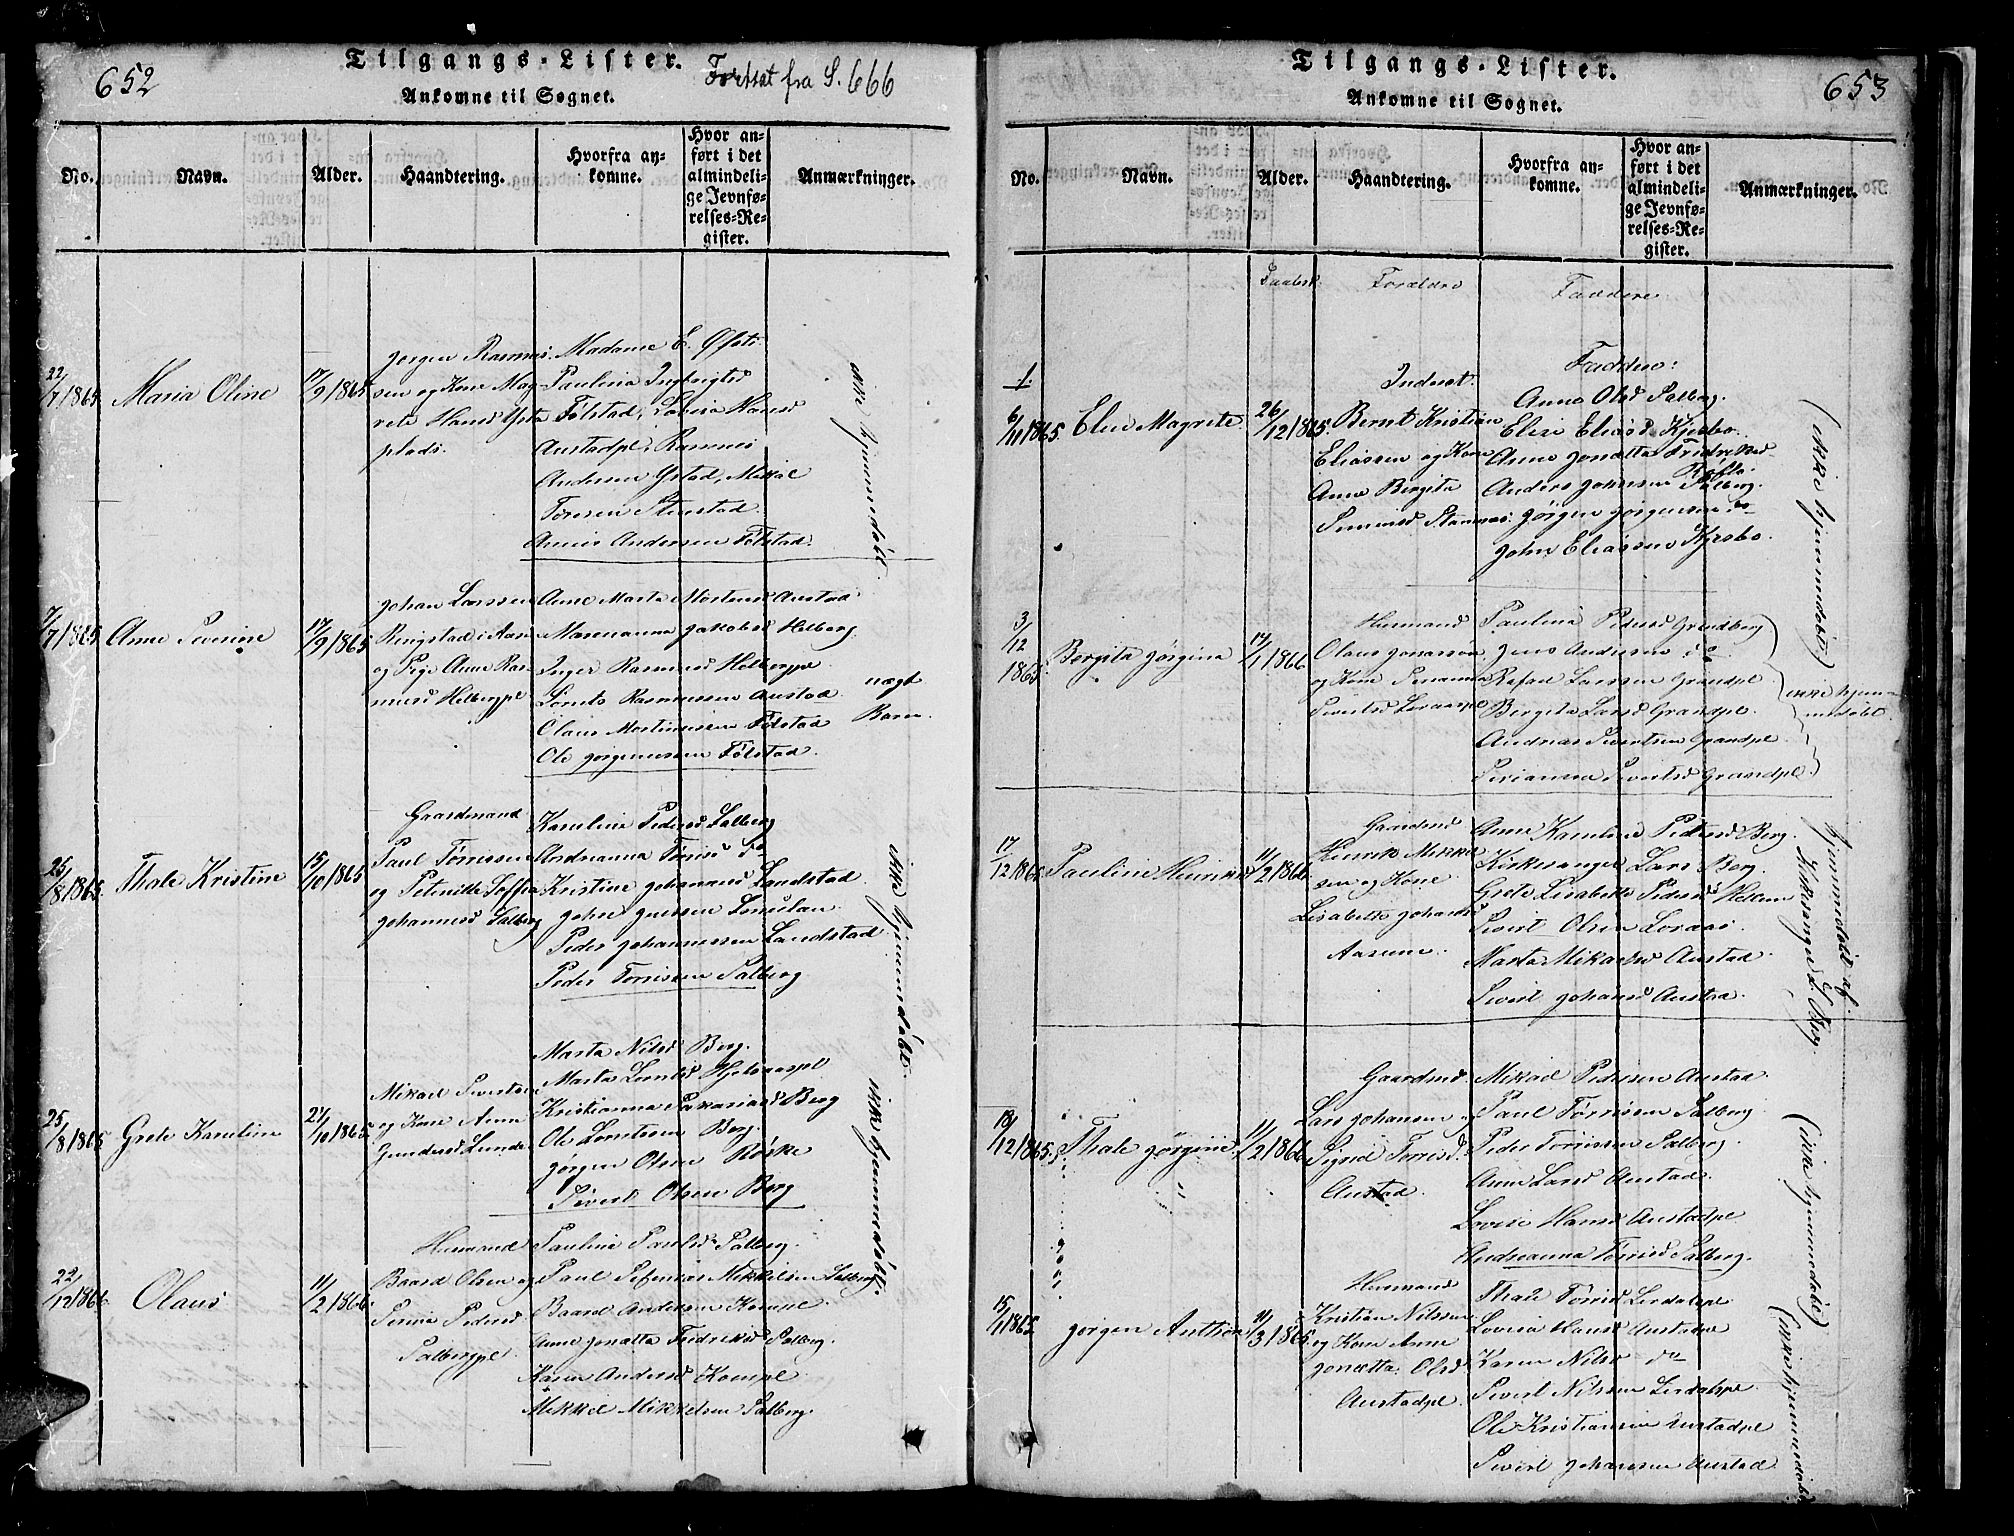 652
Tilgangs-Lister.
Fortsat fra S. 666
Ankomne til Sognet.
No.
Navn.
Alder.
Haandtering.
Hvorfra an-
komne.
Hvor an-
ført i det
almindeli-
ge Jevnfø-
relses-Re-
gister.
Anmærkninger.
22/7 1865
Maria Oline
17/9 1865
Jørgen Rasmus-
sen og Kone Mag-
rete Hansd Ysta
plads.
Madame E. Øfsti
Paulina Ingbrigtsd
Følstad, Lovisa Hansd
Austadpl, Rasmus
Andersen Ystad, Mikal
Toresen Stenstad
Andersen Følstad.
ikke hjemmedøbt.
7/7 1865
Anne Severine
17/9 1865
Johan Larssen
Ringstad i Aasn
og Pige Anne Ras-
musd Helbergpl
Anne Marta Mortensd Austad
Marenanna Jakobsd Helberg
Inger Rasmusd Helbergpl
Lornts Rasmussen Austad
Olaus Mortinussen Følstad
Ole Jørgenssen Følstad.
uægt
Barn.
25/8 1865
Thale Kristine
15/10 1865
Gaardmand
Paul Tørrissen
og Petnille Soffia
Johannesd Salberg
Karoline Pedersd Salberg
Andrianna Tørrisd do
Kristine Johannesd Landstad
John Jnessen
Peder Johannessen Landstad
Peder Tørrissen Salberg
ikke hjemmedøbt.
25/8 1865
Grete Karoline
21/10 1865
Mikael Sivertsen
og Kone Anne
Gundersd Lunde
Marta Nilsd Berg.
Marta Lorntsd Hjelmaspl
Kristianna Sakariasd Berg
Ole Lorntsen Berg.
Jørgen Olsen Røske
Sivert Olsen Berg
ikke hjemmedøbt.
22/12 1866
Olaus
11/2 1866
Husmand
Baard Olsen og
Serina Pedersd
Salbergpl.
Paulina Paulsd Salberg.
Paul Mikkelsen Salberg
Baard Andersen Kompl.
Anne Jonetta Fredriksd Salberg
Karen Andersd Kompl.
Mikkel Mikkelsen Salberg.
Tilgangs-Lister.
653
Ankomne til Sognet.
No.
Navn.
Alder.
Haandtering.
Hvorfra an-
komne.
Hvor an-
ført i det
almindeli-
ge Jevnfø-
relses-Re-
gister.
Anmærkninger.
Daabsd.
Forældre
Faddere
1.
6/11 1865.
Elen Magrete.
26/12 1865.
Inderst.
Bernt Kristian
Eliassen og Kone
Anne Bergita
Simonsd Stamnes
Faddere:
Anne Olsd Salberg.
Elise Eliasd Kjesbo.
Anne Jonetta Fredriksd
Røflo.
Anders Johnsen Salberg.
Jørgen Jørgensen do
John Eliassen Kjesbo.
(ikke hjemmedøbt)
3/12
1865.
Bergita Jørgina
14/1 1866
Husmand
Olaus Jonassen
og Kone Susanna
Sivertsd Loraaspl
Paulina Pedersd Grandberg
Jens Andersen do
Rafael Larssen Grandpl.
Bergita Larsd Grandpl.
Andreas Sivertsen Grandpl.
Serianna Sivertsd Grandpl.
ikke hjem-
medøbt.
17/12 1865
Pauline Henrikke
11/2 1866
Gaardmd
Henrik Mikkel-
sen og Kone
Lisabeth Johansd
Aasum.
Anne Karoline Pedersd Berg.
Kirkesanger Lars Berg.
Grete Lisabeth Pedersd Hellem
Sivert Olsen Loraas.
Marta Mikaelsd Austad.
Sivert Johansd Austad.
hjemmedøbt af.
Kirkesanger L. Berg
18/12 1865.
Thale Jørgine
11/2 1866
Gaardmd.
Lars Johansen og
Sigrid Tørrisd.
Austad.
Mikael Pedersen Austad
Paul Tørrissen Salberg
Peder Tørrissen Salberg.
Anne Larsd Austad.
Lovise Hansd Austadpl
Andreanna Tørrisd Salberg.
(ikke hjemmedøbt)
15/1 1865
Jørgen Anthon
11/3 1865
Husmand
Kristian Nilssen
og Kone Anne
Jonetta Olsd
Austadpl.
Thale Tørrisd Lerdalspl
Lovisa Hansd Austadpl
Karen Nilsd do
Sivert Nilssen Lerdalspl.
Ole Kristiansen Austadpl
Sivert Johansen Austad
(ikke hjemmedøbt)